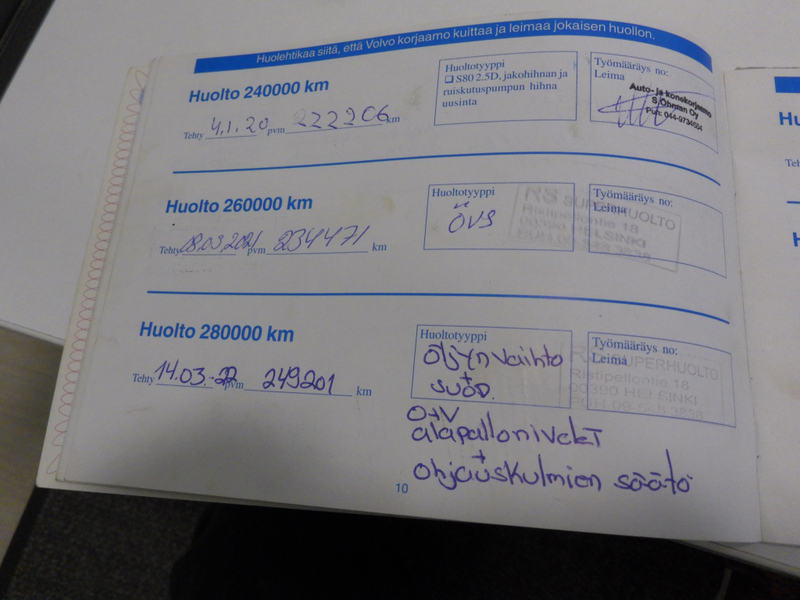 Huolehtikaa siitä, että Volvo korjaamo kuittaa ja leimaa jokaisen huollon.
Huolto 240000 km
Tehty 4.1.20 pvm 222206 km
Huoltotyyppi
❑ S80 2.5D, jakohihnan ja
ruiskutuspumpun hihna
uusinta
Työmääräys no:
Leima
Auto- ja konekorjaamo
S Öhman Oy
Puh: 044-9734504
Huolto 260000 km
Tehty 08.03.2021 pvm 234471 km
Huoltotyyppi
ÖVS
Työmääräys no:
Leima
RS SUPERHUOLTO
Ristipellontie 18
00390 HELSINKI
Huolto 280000 km
Tehty 14.03.-22 pvm 249201 km
Huoltotyyppi
öljynvaihto
+
suod.
O+V
alapallonivelet
+
ohjauskulmien säätö
Työmääräys no:
Leima
RS SUPERHUOLTO
Ristipellontie 18
00390 HELSINKI
10